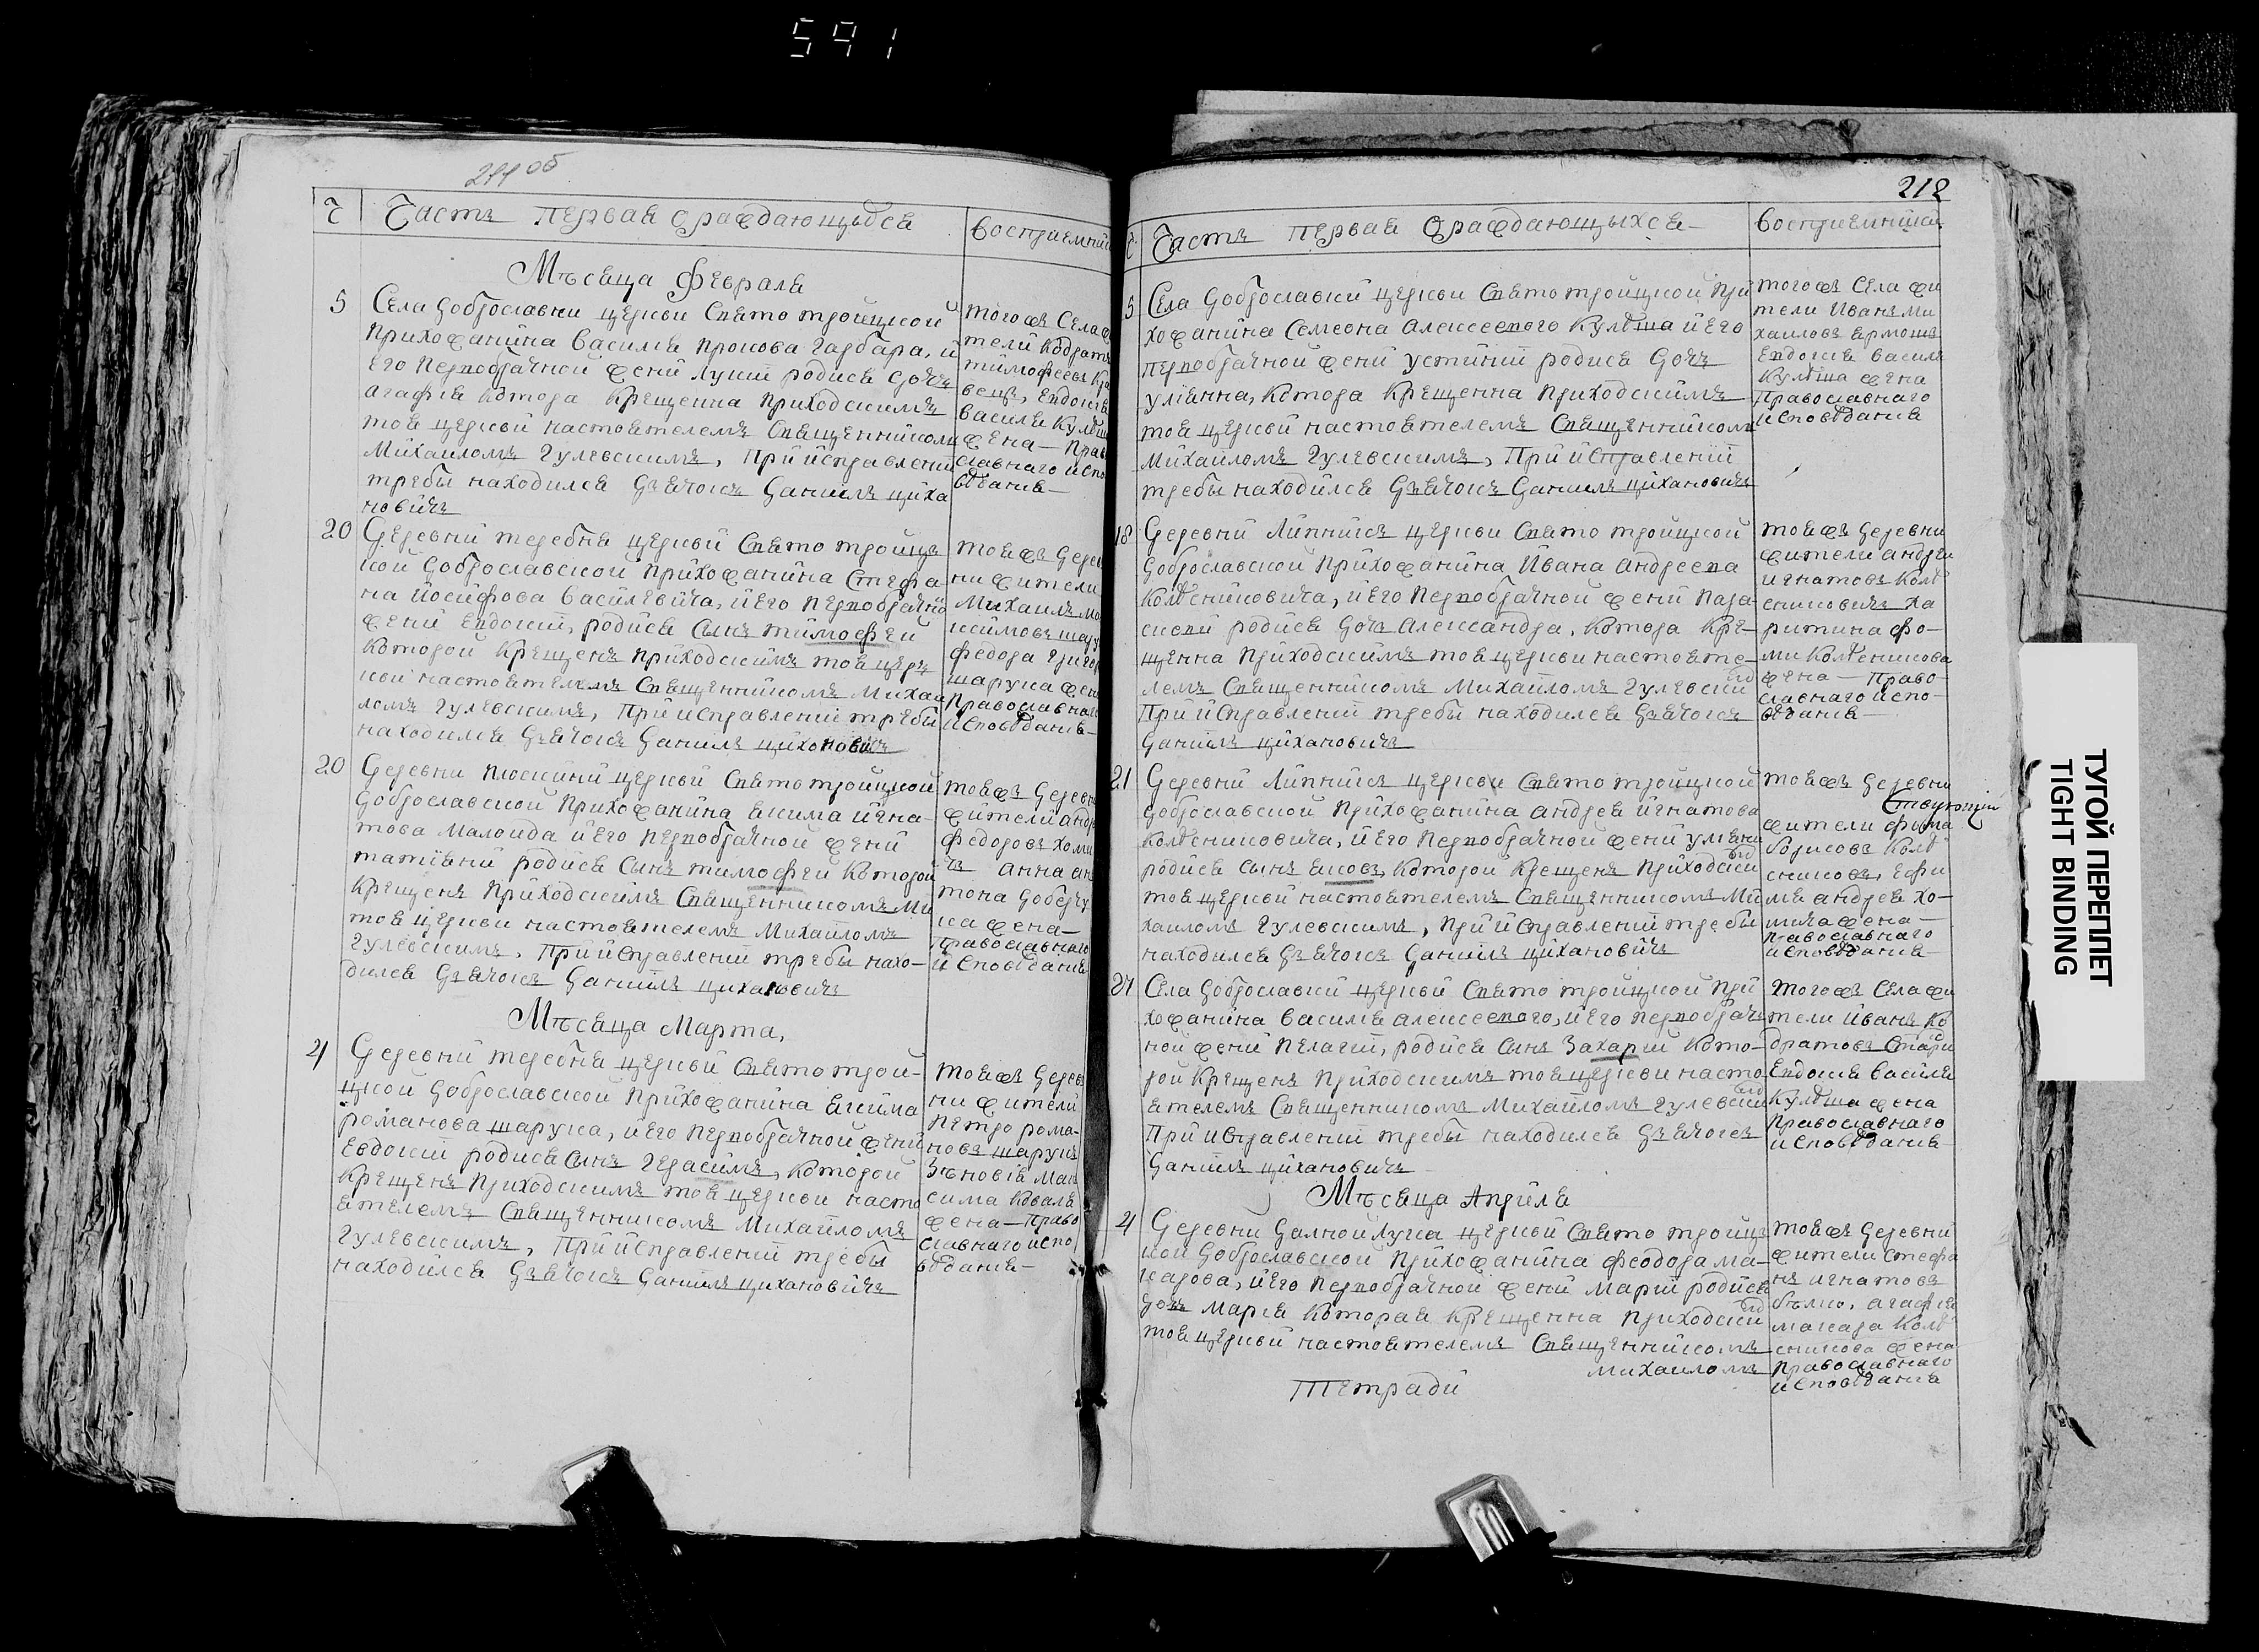 591
211 об
Ч Часть первая о раждающыхся
восприемни
Мѣсяца февраля
5 Села Доброславки церкви Свято тройцкой
прихожанина василія
его первобрачной жени Лукіи родися дочь
агафія котора крещенна приходскимъ
тоя церкви настоятелемъ Священникомъ
Михаиломъ Гулевскимъ, При исправлении
требы находился Дзячокъ Даниилъ циха
новичъ
тогожъ Села ж
тели кодратъ
тимофеевъ
вецъ, евдокія
василія Кулѣш
жена — Прав
славнаго испо
вѣданія —
20 Деревни теребня церкви Свято тройцъ
кой Доброславской Прихожанина Стефа
на Йосифова василевича, и его первобрачно
жени евдокіи, родися сынъ тимофей
которой крещенъ приходскимъ тоя церъ
кви настоятелемъ Священникомъ Михаи
ломъ Гулевскимъ, При исправлении требы
находился Дзячокъ Даниилъ цихоновичъ
тояжъ дерев
ни жители
Михаилъ ма
ксимовъ шару
федора григо
шарука жен
Православнаго
исповѣданія —
20 Деревни плоскини церкви Свято тройцкой
Доброславской Прихожанина якима игна
това и его первобрачной жени
татіяни родися сынъ тимофей которой
крещенъ Приходскимъ Священникомъ Ми
тоя церкви настоятелемъ Михаиломъ
Гулевскимъ, При исправлении требы нахо
дился Дзячокъ Даниилъ цихановичъ
тояжъ деревн
жители андр
федоровъ хоми
чъ анна ан
тона
ка жена —
Православнаго
исповѣданія
Мѣсяца Марта,
4 Деревни теребня церкви Свято трой-
цкой Доброславской Прихожанина якима
романова шарука, и его первобрачной жени
евдокіи родися сынъ Герасимъ, которой
крещенъ Приходскимъ тоя церкви насто
ятелемъ Священникомъ Михаиломъ
Гулевскимъ, При исправлении требы
находился Дзячокъ Даниилъ цихановичъ
тояжъ дерев
ни жители
петро рома-
новъ шарукъ
Зѣновія Мак
сима коваля
жена — Право
славнаго испо
вѣданія —
212
Часть первая о раждающыхся
восприемники
5 Села Доброславки церкви Свято тройцкой при
хожанина Семеона алексеевого Кулѣша и его
первобрачной жени устинии родися дочь
уліянна, котора крещенна Приходскимъ
тоя церкви настоятелемъ Священникомъ
Михаиломъ Гулевскимъ, При исправлении
требы находился Дзячокъ Даниилъ цихановичъ
тогожъ Села жи
тели иванъ ми
хаиловъ ермошъ
евдокія василя
Кулѣша жена
Православнаго
исповѣданія
18 Деревни Липникъ церкви Свято тройцкой
Доброславской Прихожанина Ивана андреева
Колѣсниковича, и его первобрачной жени пара-
скеви родися дочь александра, котора кре-
щенна Приходскимъ тоя церкви настояте-
лемъ Священникомъ Михаиломъ Гулевским
При исправлении требы находился Дзячокъ
Даниилъ цихановичъ
тояжъ деревни
жители андрей
игнатовъ Колѣ
сниковичъ ха
ритина фо-
ми Колѣсникова
жена — Право
славнаго испо-
вѣданія —
21 Деревни Липникъ церкви Свято тройцкой
Доброславской Прихожанина андрея игнатова
Колѣсниковича, и его первобрачной жени уляни
родися сынъ яковъ, которой крещенъ Приходским
тоя церкви настоятелемъ Священникомъ Ми
хаиломъ Гулевскимъ, При исправлении требы
находился Дзячокъ Даниилъ цихановичъ
тояжъ деревни
жители фома
борисовъ Колѣ
сниковъ, ефи
мія андрея хо-
мича жена —
Православнаго
исповѣданія —
27 Села Доброславки церкви Свято тройцкой При
хожанина василія алексеевого, и его первобрач
ной жени пелагии, родися сынъ Захарий кото-
рой крещенъ Приходскимъ тоя церкви насто
ятелемъ Священникомъ Михаиломъ Гулевским
При исправлении требы находился Дзячокъ
Даниилъ цихановичъ
тогожъ Села жи
тели иванъ ко
дратовъ
евдокія василя
Кулѣша жена
Православнаго
исповѣданія
Мѣсяца Априля
4 Деревни церкви Свято тройцъ
кой Доброславской Прихожанина феодора ма-
карова, и его первобрачной жени Марии родися
дочь Марія которая крещенна приходским
тоя церкви настоятелемъ Священникомъ
михаиломъ
тояжъ деревни
жители стефа
нъ игнатовъ
агафія
макара Колѣ
сникова жена
Православнаго
исповѣданія
Тетради
ТУГОЙ ПЕРЕПЛЕТ
TIGHT BINDING